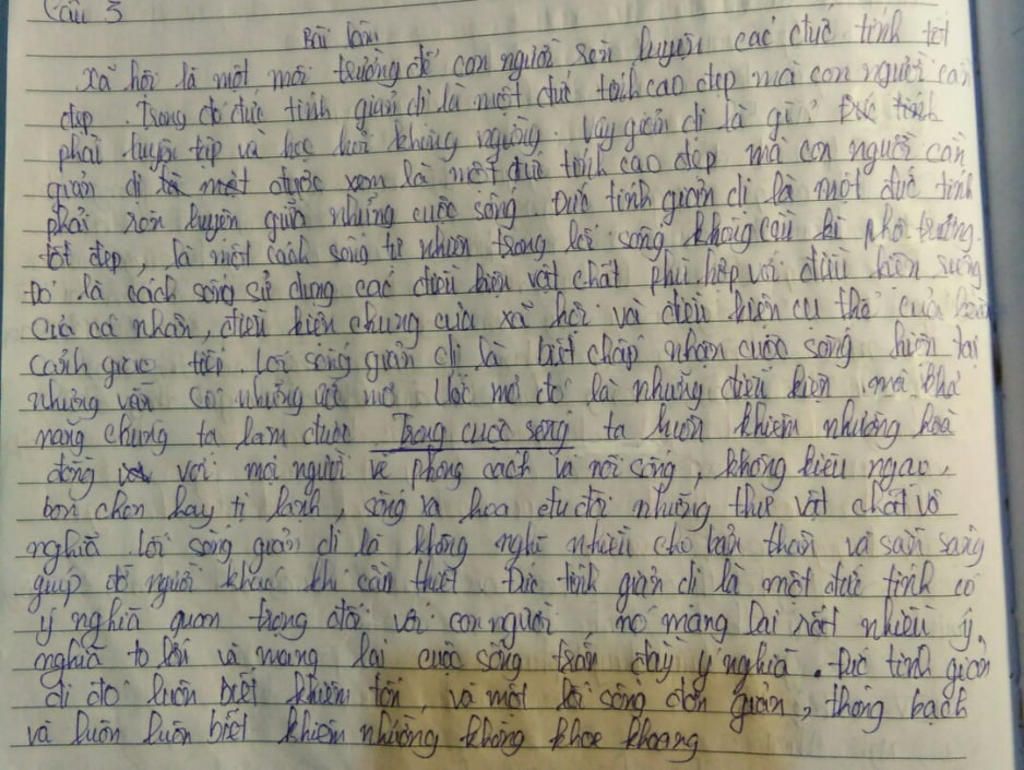 Câu 3
Bài làm
Xã hội là một môi trường để con người rèn luyện các đức tính tốt
đẹp. Trong đó đức tính giản dị là một đức tính cao đẹp mà con người cần
phải luyện tập và học hỏi không ngừng. Vậy giản dị là gì? Đức tính
giản dị được xem là một đức tính cao đẹp mà con người cần
phải rèn luyện giữa những cuộc sống. Đức tính giản dị là một đức tính
tốt đẹp, là một cách sống tự nhiên trong lối sống không cầu kì phô trương.
Đó là cách sống sử dụng các điều kiện vật chất phù hợp với điều kiện sống
của cá nhân, điều kiện chung của xã hội và điều kiện cụ thể của hoàn
cảnh giao tiếp. Lối sống giản dị là biết chấp nhận cuộc sống hiện tại
nhưng vẫn có những ước mơ. Ước mơ đó là những điều kiện mà khả
năng chúng ta làm được. Trong cuộc sống ta luôn khiêm nhường hoà
đồng với mọi người về phong cách và nối sống, không kiêu ngạo,
bon chen hay tị lạnh, sống xa hoa đu đòi những thứ vật chất vô
nghĩa. Lối sống giản dị là không nghĩ nhiều cho bản thân và sẵn sàng
giúp đỡ người khác khi cần thiết. Đức tính giản dị là một đức tính có
ý nghĩa quan trọng đối với con người, nó mang lại rất nhiều ý
nghĩa to lớn và mang lại cuộc sống tràn đầy ý nghĩa. Đức tính giản
dị đó luôn biết khiêm tốn, và một lối sống đơn giản, thông bạch
và luôn luôn biết khiêm nhường không khoe khoang